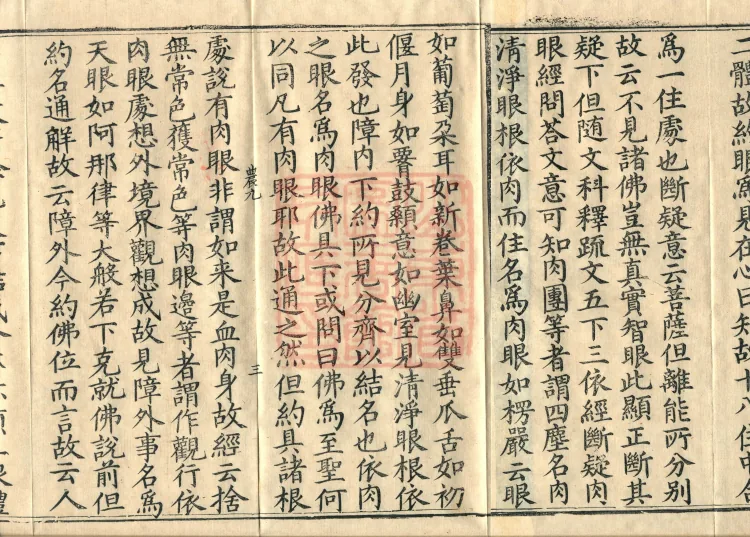 體故維眼
爲一住處也斷疑意云菩薩但離能所分別
故云不見諸佛豈無真實智眼此顯正斷其
疑下但随文科釋疏文五下三依經斷疑肉
眼經問荅文意可知肉團等者謂四塵名肉
清淨眼根依肉而住名爲肉眼如楞嚴云眼
如葡萄朶耳如新卷葉鼻如雙垂瓜舌如初
偃月身如腰鼓顙意如幽室見清淨眼根依
此發也障内下約所見分齊以結名也依肉
之眼名爲肉眼佛具下或問曰佛爲至聖何
以同凡有肉眼耶故此通之然但約具諸根
農九
三
處說有肉眼非謂如来是血肉身故經云捨
無常色獲常色等肉眼邊等者謂作觀行依
肉眼處想外境界觀想成故見障外事名爲
天眼如阿那律等大般若下克就佛說前但
約名通解故云障外今約佛位而言故云人